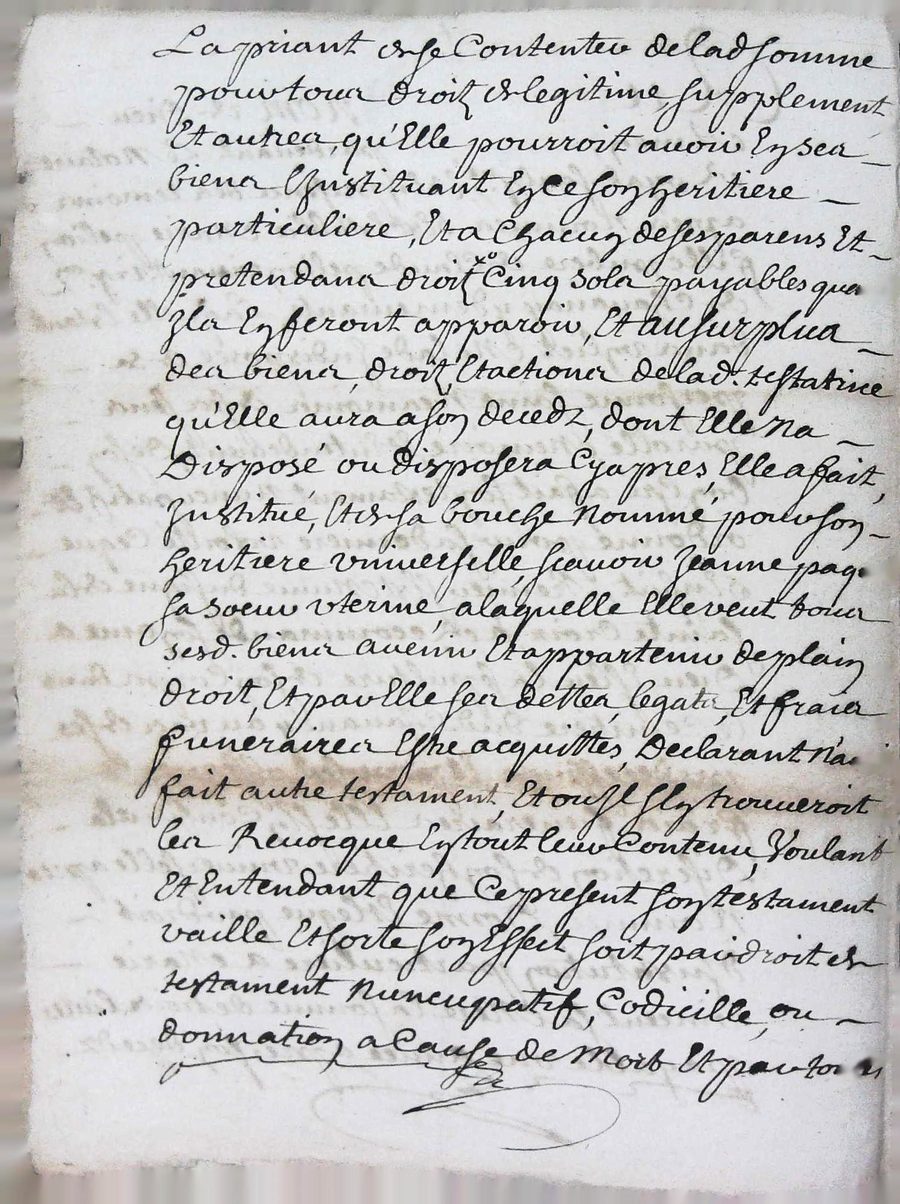 La priant de se Contenter de lad somme
pour tous droitz de legitime, supplement
Et autres, qu'Elle pourroit avoir En ses
biens L'Instituant En Ce son heritiere
particuliere, Et a Chacun de ses parens Et
pretendans droitz Cinq sols payables quand
Ils En feront apparoir, Et au surplus
des biens, droitz, Et actions de lad. testatrice
qu'Elle aura a son decedz, dont Elle Na
Disposé ou disposera Cy apres, Elle a fait,
Institué, Et de sa bouche Nommé pour son
heritiere universelle, scavoir Jeanne
sa soeur uterine, a laquelle Elle veut tous
sesd. biens avenir Et appartenir de plain
droit, Et par Elle ses dettes, legats, Et frais
funeraires Estre acquittés, Declarant
fait autre testament, Et ou Il s'En trouveroit
les Revocque En tout leur Contenu, Voulant
Et Entendant que Ce present son testament
vaille Et sorte son Effect soit par droit de
testament Nuncupatif, Codicille, ou
donnation a Cause de Mort Et par tous